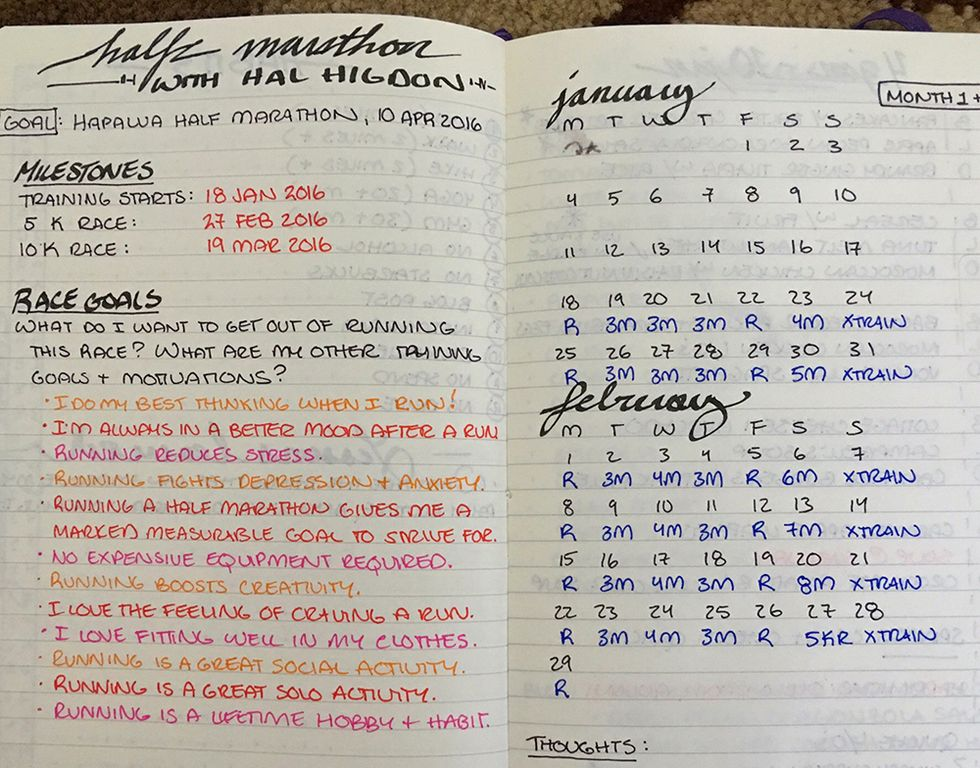 half marathon
WITH HAL HIGDON
GOAL: HAPALUA HALF MARATHON, 10 APR 2016
MILESTONES
TRAINING STARTS: 18 JAN 2016
5 K RACE: 27 FEB 2016
10 K RACE: 19 MAR 2016
RACE GOALS
WHAT DO I WANT TO GET OUT OF RUNNING
THIS RACE? WHAT ARE MY OTHER TRAINING
GOALS + MOTIVATIONS?
· I DO MY BEST THINKING WHEN I RUN!
· I'M ALWAYS IN A BETTER MOOD AFTER A RUN
· RUNNING REDUCES STRESS.
· RUNNING FIGHTS DEPRESSION + ANXIETY.
· RUNNING A HALF MARATHON GIVES ME A
MARKED MEASURABLE GOAL TO STRIVE FOR.
· NO EXPENSIVE EQUIPMENT REQUIRED.
· RUNNING BOOSTS CREATIVITY.
· I LOVE THE FEELING OF CRAVING A RUN.
· I LOVE FITTING WELL IN MY CLOTHES.
· RUNNING IS A GREAT SOCIAL ACTIVITY.
· RUNNING IS A GREAT SOLO ACTIVITY.
· RUNNING IS A LIFETIME HOBBY + HABIT.
january
MONTH 1 +
M T W T F S S
1 2 3
4 5 6 7 8 9 10
11 12 13 14 15 16 17
18 19 20 21 22 23 24
R 3M 3M 3M R 4M XTRAIN
25 26 27 28 29 30 31
R 3M 3M 3M R 5M XTRAIN
february
M T W T F S S
1 2 3 4 5 6 7
R 3M 4M 3M R 6M XTRAIN
8 9 10 11 12 13 14
R 3M 4M 3M R 7M XTRAIN
15 16 17 18 19 20 21
R 3M 4M 3M R 8M XTRAIN
22 23 24 25 26 27 28
R 3M 4M 3M R 5KR XTRAIN
29
R
THOUGHTS: